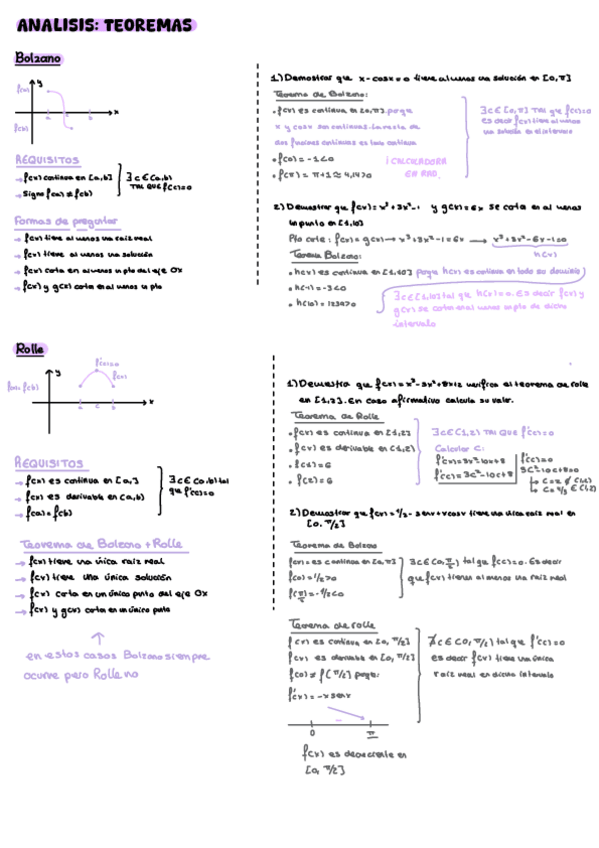 ANALISIS: TEOREMAS
Bolzano
y
x
f(a)
f(b)
a
c
b
REQUISITOS
→ f(x) continua en [a,b]
→ Signo f(a) ≠ f(b)
∃ c ∈ (a,b)
TAL QUE f(c)=0
Formas de preguntar
→ f(x) tiene al menos una raiz real
→ f(x) tiene al menos una solución
→ f(x) corta en al menos un pto del eje OX
→ f(x) y g(x) corta en al menos un pto
1) Demostrar que x-cosx=0 tiene al menos una solución en [0,π]
Teorema de Bolzano:
• f(x) es continua en [0,π] porque
x y cosx son continuas. La resta de
dos funciones continuas es todo continua
• f(0) = -1<0
• f(π) = π+1 ≈ 4,14>0
¡CALCULADORA
EN RAD.
∃ c ∈ [0,π] TAL que f(c)=0
es decir f(x) tiene al menos
una solución en el intervalo
2) Demuestrar que f(x)=x³+3x²-1 y g(x)=6x se corta en al menos
un punto en [1,10]
Pto corte: f(x)=g(x) → x³+3x²-1=6x → x³+3x²-6x-1=0
h(x)
Teorema Bolzano:
• h(x) es continua en [1,10] porque h(x) es continua en todo su dominio
• h(1)=-3<0
• h(10)=1239>0
∃ c ∈ [1,10] tal que h(c)=0. Es decir f(x) y
g(x) se cortan en al menos un pto de dicho
intervalo
Rolle
y
x
f'(c)=0
f(x)
f(a)=f(b)
a
c
b
REQUISITOS
→ f(x) es continua en [a,b]
→ f(x) es derivable en (a,b)
→ f(a)=f(b)
∃ c ∈ (a,b) tal
que f'(c)=0
Teorema de Bolzano + Rolle
→ f(x) tiene una única raiz real
→ f(x) tiene una única solución
→ f(x) corta en un único punto del eje OX
→ f(x) y g(x) corta en un único punto
en estos casos Bolzano siempre
ocurre pero Rolle no
1) Demuestra que f(x)=x³-5x²+8x+2 verifica el teorema de rolle
en [1,2]. En caso afirmativo calcula su valor.
Teorema de Rolle
• f(x) es continua en [1,2]
• f(x) es derivable en (1,2)
• f(1)=6
• f(2)=6
∃ c ∈ (1,2) TAL QUE f'(c)=0
Calcular C:
f'(x)=3x²-10x+8
f'(c)=3c²-10c+8
f'(c)=0
3c²-10c+8=0
→ C=2 ∉ (1,2)
→ C=4/3 ∈ (1,2)
2) Demostrar que f(x)=1/2-senx+xcosx tiene una única raiz real en
[0,π/2]
Teorema de Bolzano
f(0)=1/2>0
f(π/2)=-1/2<0
∃ c ∈ (0,π/2) tal que f(c)=0. Es decir
que f(x) tiene al menos una raiz real
Teorema de rolle
f(x) es continua en [0,π/2]
f(x) es derivable en (0,π/2)
f(0) ≠ f(π/2) porque:
f'(x)=-xsenx
∄ c ∈ (0,π/2) tal que f'(c)=0
es decir f(x) tiene una única
raiz real en dicho intervalo
-
0
π
f(x) es decreciente en
[0,π/2]